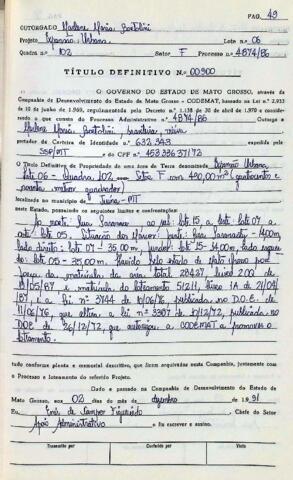 PAG. 49
OUTORGADO Marlene Maria Bortolini
Projeto Expansão Urbana Lote n.o 06
Quadra n.o 102 Setor F Processo n.o 4874/86
TÍTULO DEFINITIVO N.o 00900
O GOVERNO DO ESTADO DE MATO GROSSO, através da
Companhia de Desenvolvimento do Estado de Mato Grosso - CODEMAT, baseado na Lei n.o 2.933
de 10 de junho de 1969, regulamentada pelo Decreto n.o 1.138 de 30 de abril de 1970 e considerando
o que consta do Processo Administrativo n.o 4874/86 Outorga a
Marlene Maria Bortolini, brasileira,
portador da Carteira de Identidade n.o 632.343 expedida pela
SSP/MT e do CPF n.o 453386371/72
O Título Definitivo de Propriedade de uma área de terra denominada Expansão Urbana
Lote 06 - Quadra 102 - Setor F com 490,00 m² (quatrocentos e
noventa metros quadrados)
localizado no município de Juína - MT
Estado, possuindo os seguintes limites e confrontações:
Ao norte Rua ao sul lote 15, a leste lote 07 a
oeste lote 05. frente: Rua
lado direito: lote 07 - 35,00m, fundos: lote 15 - 14,00m, lado esquerdo:
lote 05 - 35,00m. Havido pelo estado de Mato Grosso por
força da matrícula da área total 28427, livro 2
/05/87 e matrícula do loteamento 51211, livro 1A de 21/04/
87, e a lei nº 3744 de 10/06/76, publicada no D.O.E. de
11/06/76, que altera a lei nº 3307 de /12/72, publicada no
DOE de 26/12/72, que autorizou a CODEMAT a promover o
loteamento.
tudo conforme planta e memorial descritivo, que ficam arquivados nesta Companhia, juntamente com
o Processo e Loteamento do referido Projeto.
Dado e passado na Companhia de Desenvolvimento do Estado de
Mato Grosso, aos 02 dias do mês de dezembro de 1991
Eu de Campos Figueiredo Chefe do Setor
Apoio Administrativo o fiz escrever e assino.
Transcrito por Conferido por Visto